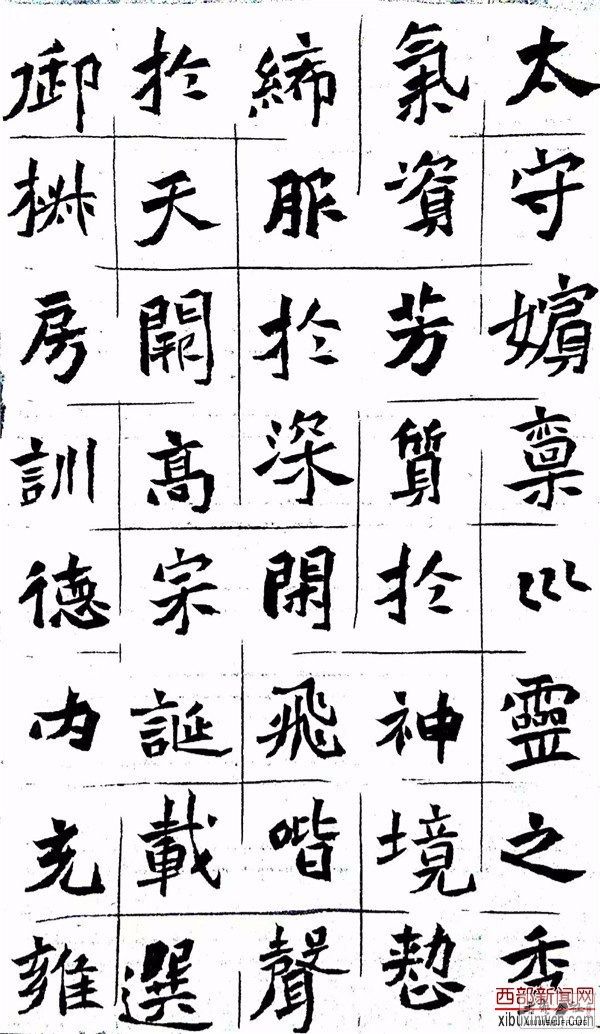 太守嬪稟巛靈之秀
氣資芳質於神境懃
絺服於深閑飛喈聲
於天闕高宗誕載選
御椒房訓德內充雍
西部新闻网
xibuxinwen.com